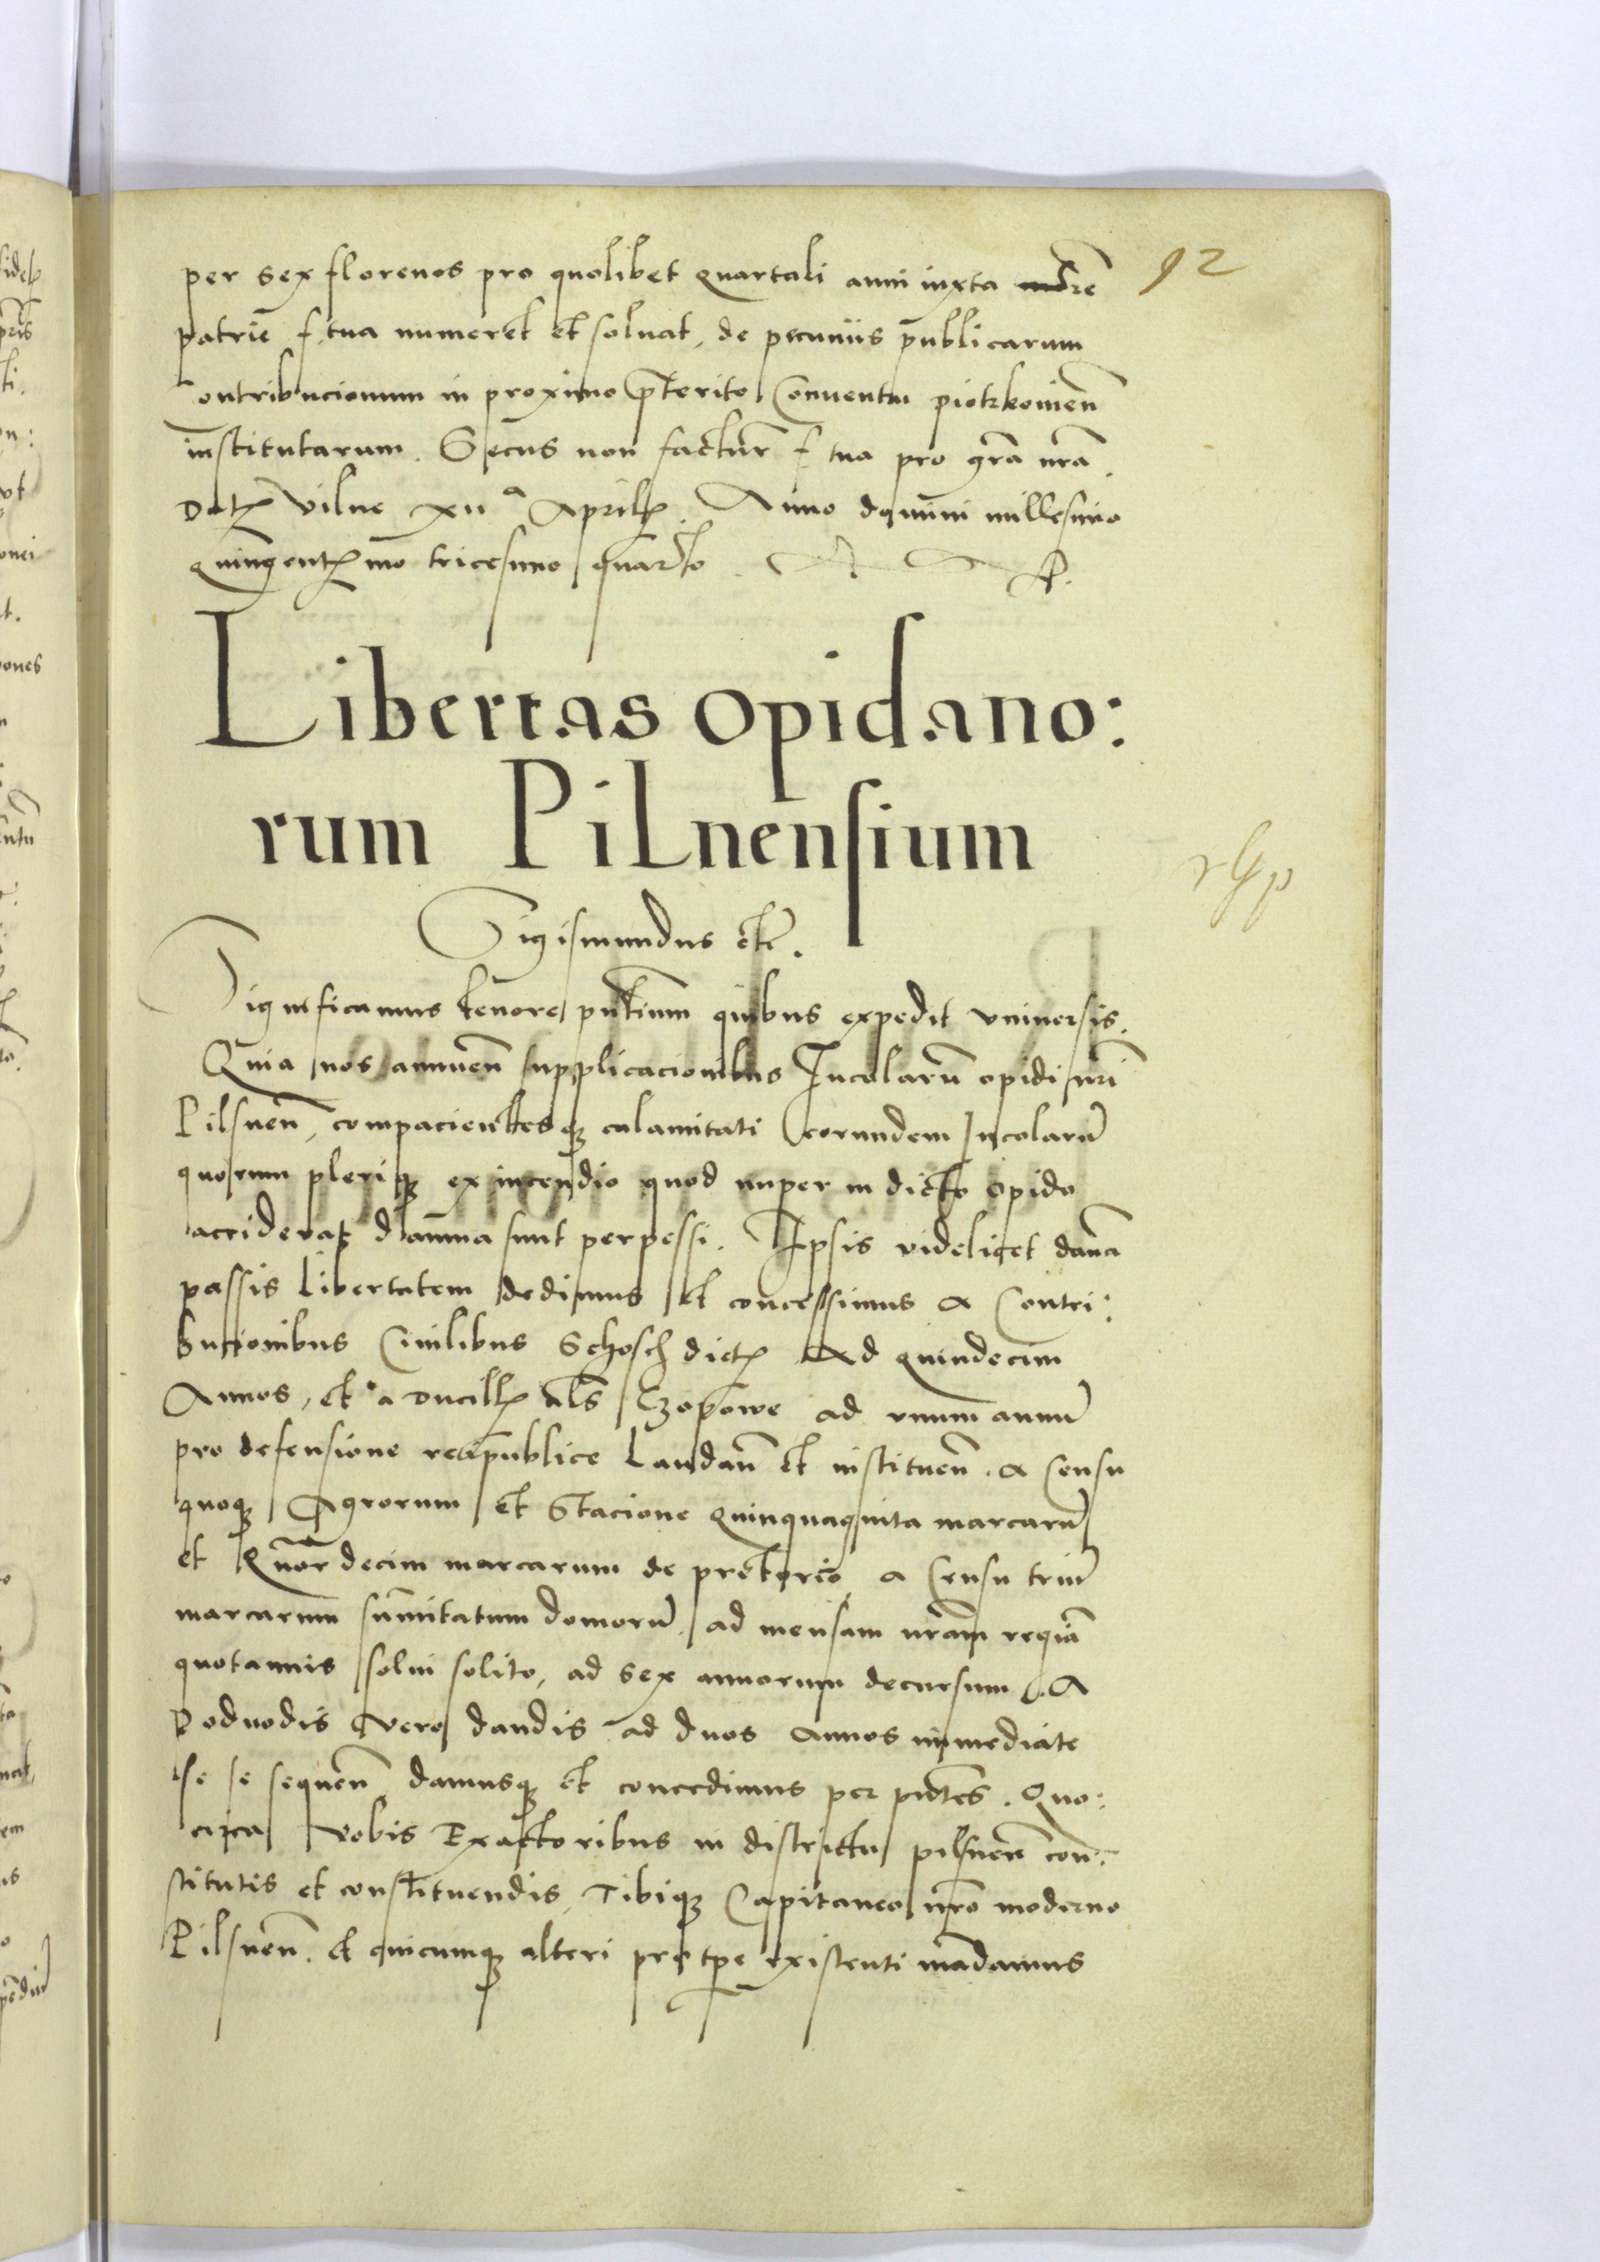 92
per sex florenos pro quolibet quartali anni iuxta morē
patrie f. tua numeret et soluat, de pecuniis publicarum
contribucionum in proximo p̄terito Conuentu piotrkouien̄
institutarum. Secus non factur̄ f tua pro gr̄a nr̄a.
Datꝭ Vilne xii ͣ Aprilꝭ Anno domini millesimo
quingentꝭmo tricesimo quarto.
Libertas opidano:
rum Pilnensium
Sigismundus etc̄.
Significamus tenore pn̄tium quibus expedit vniuersis.
Quia nos annuen̄ supplicacionibus Incolarū opidi nr̄i
Pilsnen̄, compacientesqꝫ calamitati eorundem Incolarū
quorum pleriqꝫ ex incendio quod nuper in dicto opido
acciderat damna sunt perpessi. Ipsis videlicet dan̄a
passis libertatem dedimus et concessimus a Contri:
bucionibus Ciuilibus Schosch dictꝭ Ad quindecim
Annos, et a Ducillꝭ al̄s Czopowe ad vnum annū
pro defensione reipublice Laudan̄ et instituen̄. a Censu
quoqꝫ Agrorum et Stacione quinquaginta marcarū
et Qn̄or decim marcarum de pretorio, a Censu triū
marcarum sum̄itatum domorū, ad mensam nr̄am regiā
quotannis solui solito, ad sex annorum decursum. A
Poduodis vero dandis ad duos annos immediate
se se sequen̄ damusqꝫ et concedimus per pn̄tes. Quo:
circa vobis Exactoribus in districtu pilsnen̄ con:
stitutis et constituendis, Tibiqꝫ Capitaneo nr̄o moderno
Pilsnen̄. et quicumqꝫ alteri pro tp̄e existenti mādamus